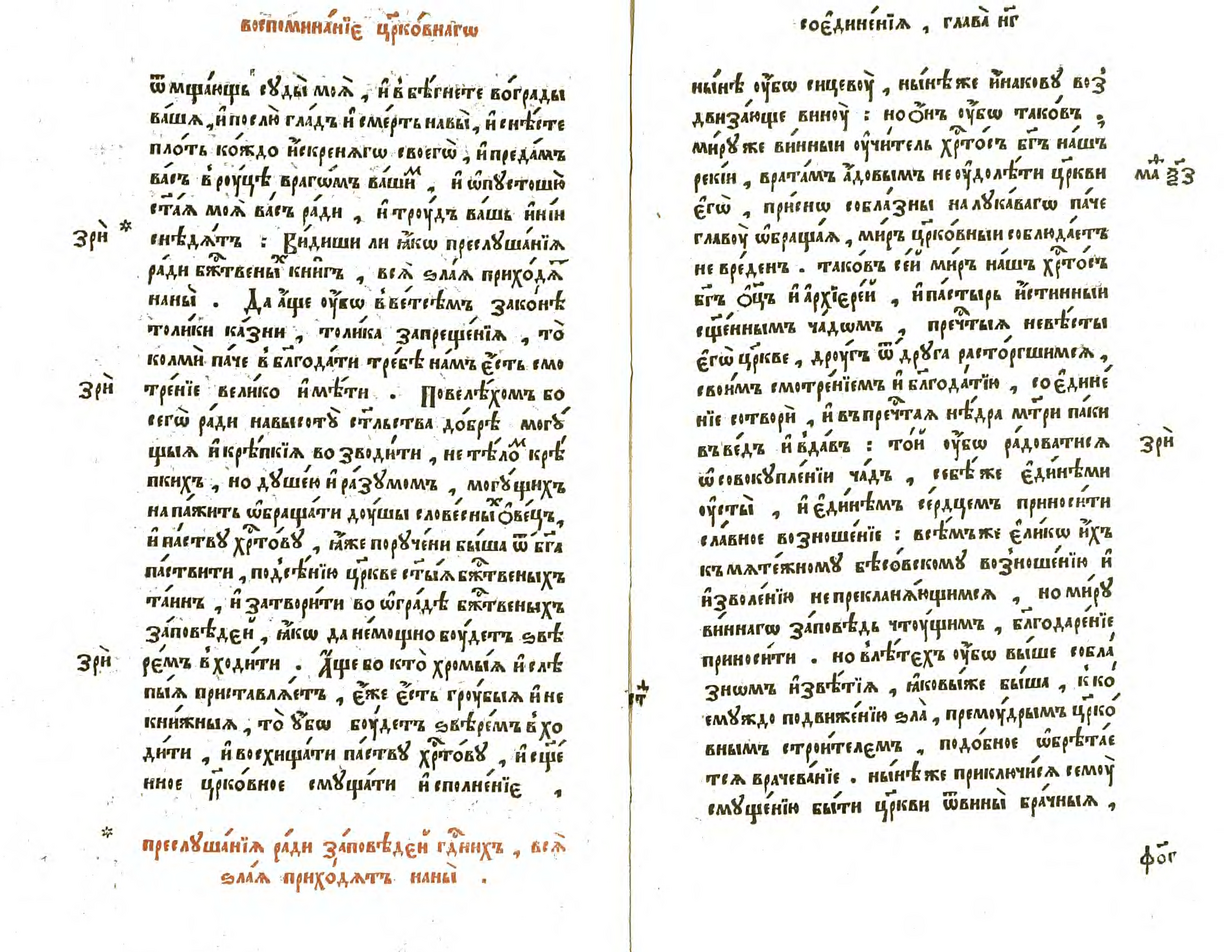 воспомина́нїе цр҃ко́внагѡ
ѿмща́ющь суды̀ моѧ̀ , и҆ вбѣ́гнете во грады
ва́шѧ , и҆ послю̀ гла́дъ и҆ сме́рть на вы̀ , и҆ снѣ́сте
пло́ть ко́ждо и҆́скренѧгѡ своегѡ̀ , и҆ преда́мъ
ва́съ в роу́цѣ врагѡ́мъ ва́ши́ⷨ , и҆ ѡ҆пустошю̀
ст҃а́ѧ моѧ̀ ва́съ ра́ди , и҆ троу́дъ ва́шь и҆ні́и
зрѝ * снѣдѧ́тъ : Ви́диши ли ꙗ҆́кѡ преслꙋша́нїѧ
ра́ди бж҃твены́ⷯ кни́гъ , всѧ̀ ѕла́ѧ прихо́дѧⷮ
на ны̀ . Да а҆́ще оу҆́бѡ в ве́тсѣмъ зако́нѣ
толи́ки ка́зни , толи́ка запреще́нїѧ , то̀
колмѝ па́че в бл҃года́ти тре́бѣ на́мъ є҆́сть смо
зрѝ тре́нїе велико и҆мѣ́ти . Повелѣ́хомъ бо
сегѡ̀ ра́ди на высотꙋ̀ ст҃льства до́брѣ могꙋ́
щыѧ и҆ крѣ́пкїѧ возводи́ти , не тѣ́ло́ⷨ крѣ́
пкихъ , но душе́ю и҆ ра́зумомъ , могу́щихъ
на па́жить ѡ҆браща́ти доу́шы слове́сны́ⷯ о҆ве́цъ ,
и҆ па́ству хр҃то́ву , ꙗ҆́же пору́чени бы́ша ѿ бг҃а
па́ствити , под сѣ́нїю цр҃кве ст҃ы́ѧ бж҃твеныхъ
та́инъ , и҆ затвори́ти во ѡ҆гра́дѣ бж҃твеныхъ
за́повѣдей , ꙗ҆́кѡ да не мо́щно боу́детъ ѕвѣ
зрѝ ре́мъ входи́ти . А҆́ще бо кто̀ хромы́ѧ и҆ слѣ
пы́ѧ приставлѧ́етъ , є҆́же є҆́сть гроу́быѧ и҆ не
кни́жныѧ , то̀ ꙋ҆́бѡ боу́детъ ѕвѣре́мъ вхо
ди́ти , и҆ восхища́ти па́ству хр҃то́ву , и҆ сщ҃е́
нное цр҃ко́вное смꙋща́ти и҆сполне́нїе ,
* преслꙋша́нїѧ ра́ди за́повѣдей гд҃нихъ , всѧ̀
ѕла́ѧ прихо́дѧтъ на ны̀ .
соедине́нїѧ , глава̀ н҃г
ны́нѣ оу҆́бѡ сицево́у , ны́нѣ же и҆на́ковꙋ воз
двиза́юще виноу̀ : но о҆́нъ оу҆́бѡ тако́въ ,
ми́рꙋ же ви́нныи оу҆чи́тель хр҃то́съ бг҃ъ на́шъ
реки́и , врата́мъ а҆́довымъ не оу҆долѣ́ти цр҃кви
є҆гѡ̀ , при́снѡ собла́зны на лука́вагѡ па́че
главоу̀ ѡ҆браща́ѧ , ми́ръ цр҃ко́вныи соблюда́етъ
не вре́денъ . тако́въ се́й ми́ръ на́шъ хр҃то́съ
бг҃ъ ѻ҆ц҃ъ и҆ а҆рхїере́й , и҆ па́стырь и҆́стинныи
сщ҃е́ннымъ ча́дѡмъ , преч҃тыѧ невѣ́сты
є҆гѡ̀ цр҃кве , дроу́гъ ѿ дру́га расто́ргшимсѧ ,
свои́мъ смотре́нїемъ и҆ бл҃года́тїю , соедине́
нїе сотворѝ , и҆ въ преч҃таѧ нѣ́дра мт҃ри па́ки
зрѝ въве́дъ и҆ вда́въ : то́й оу҆́бѡ ра́доватисѧ
ѡ҆ совокупле́нїи ча́дъ , себѣ́ же є҆ди́нѣми
оу҆сты̀ , и҆ є҆ди́нѣмъ се́рдцемъ приноси́ти
сла́вное возноше́нїе : всѣ́мъ же є҆ли́кѡ и҆́хъ
къ мѧте́жному бѣсо́вскому возноше́нїю и҆
и҆зволе́нїю не прекланѧ́ющимсѧ , но ми́рꙋ
ви́ннагѡ за́повѣдь чтоу́щимъ , бл҃годаре́нїе
приноси́ти . но в лѣ́техъ оу҆́бѡ вы́ше собла́
знѡмъ и҆звѣ́тїѧ , ꙗ҆ковы́же бы́ша , к ко́
емуждо подвиже́нїю ѕла̀ , премоу́дрымъ цр҃ко́
внымъ строи́телемъ , подо́бное ѡ҆брѣта́е
тсѧ врачева́нїе . ны́нѣ же приключи́сѧ семоу̀
смꙋще́нїю бы́ти цр҃кви ѿ вины̀ бра́чныѧ ,
фо҃г